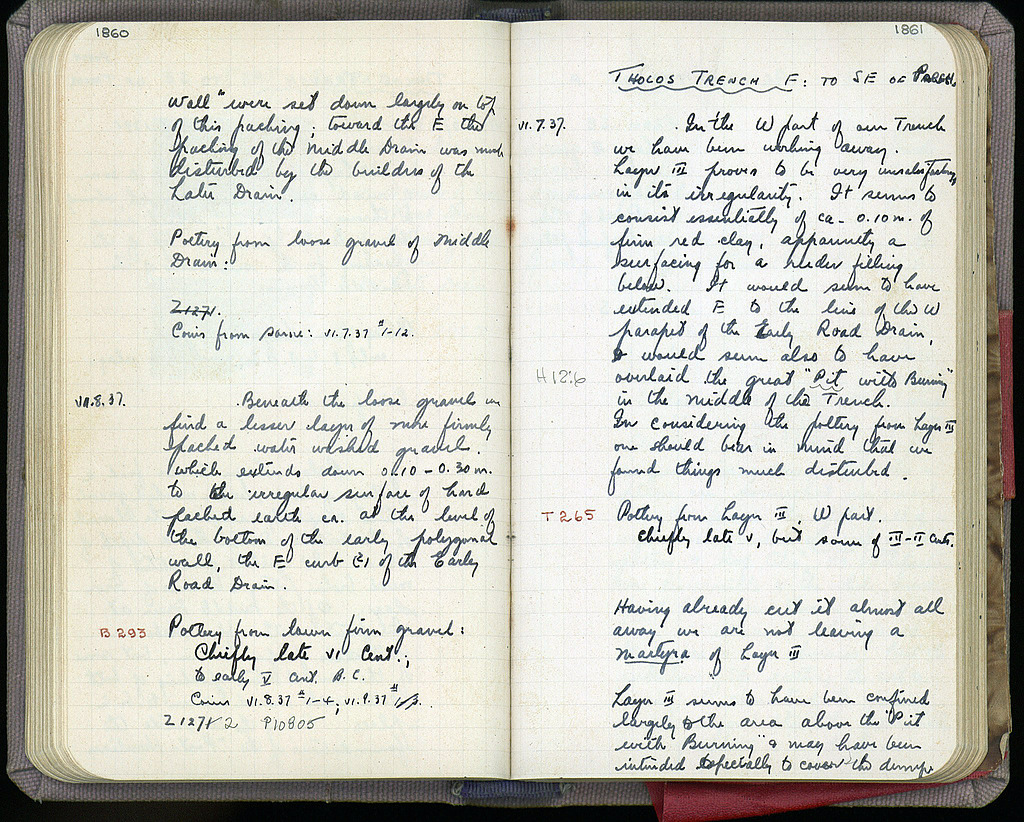 1860
wall" were set down largely on top
of this packing; toward the E the
packing of the Middle Drain was much
disturbed by the builders of the
Late Drain.
Pottery from loose gravel of Middle
Drain:
Z1271.
Coins from same: VI.7.37 #1-12.
VI.8.37. Beneath the loose gravel we
find a lesser layer of more firmly
packed water washed gravel.
which extends down 0.10-0.30 m.
to the irregular surface of hard
packed earth ca. at the level of
the bottom of the early polygonal
wall, the E curb (?) of the Early
Road Drain.
B 293 Pottery from lower firm gravel:
Chiefly late VI Cent.;
to early V cent. B.C.
Coins VI.8.37 #1-4; VI.9.37 #
Z 1272 P10805
1861
THOLOS TRENCH F: TO SE OF
VI.7.37. In the W part of our Trench
we have been working away.
Layer III proves to be very unsatisfactory
in its irregularity. It seems to
consist essentially of ca. 0.10 m. of
firm red clay, apparently a
surfacing for a ruder filling
below. It would seem to have
extended E to the line of the W
parapet of the Early Road Drain,
& would seem also to have
H 12:6 overlaid the great "Pit with Burning"
in the middle of the Trench.
In considering the pottery from Layer III
one should bear in mind that we
found things much disturbed.
T 265 Pottery from Layer III, W part.
Chiefly late V, but some of III-II cents.
Having already cut it almost all
away we are not leaving a
martyra of Layer III
Layer III seems to have been confined
largely to the area above the "Pit
with Burning" & may have been
intended especially to cover the dumped